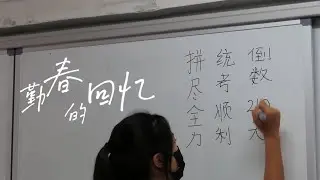 勤春的回忆
倒数20天
统考顺利
拼尽全力